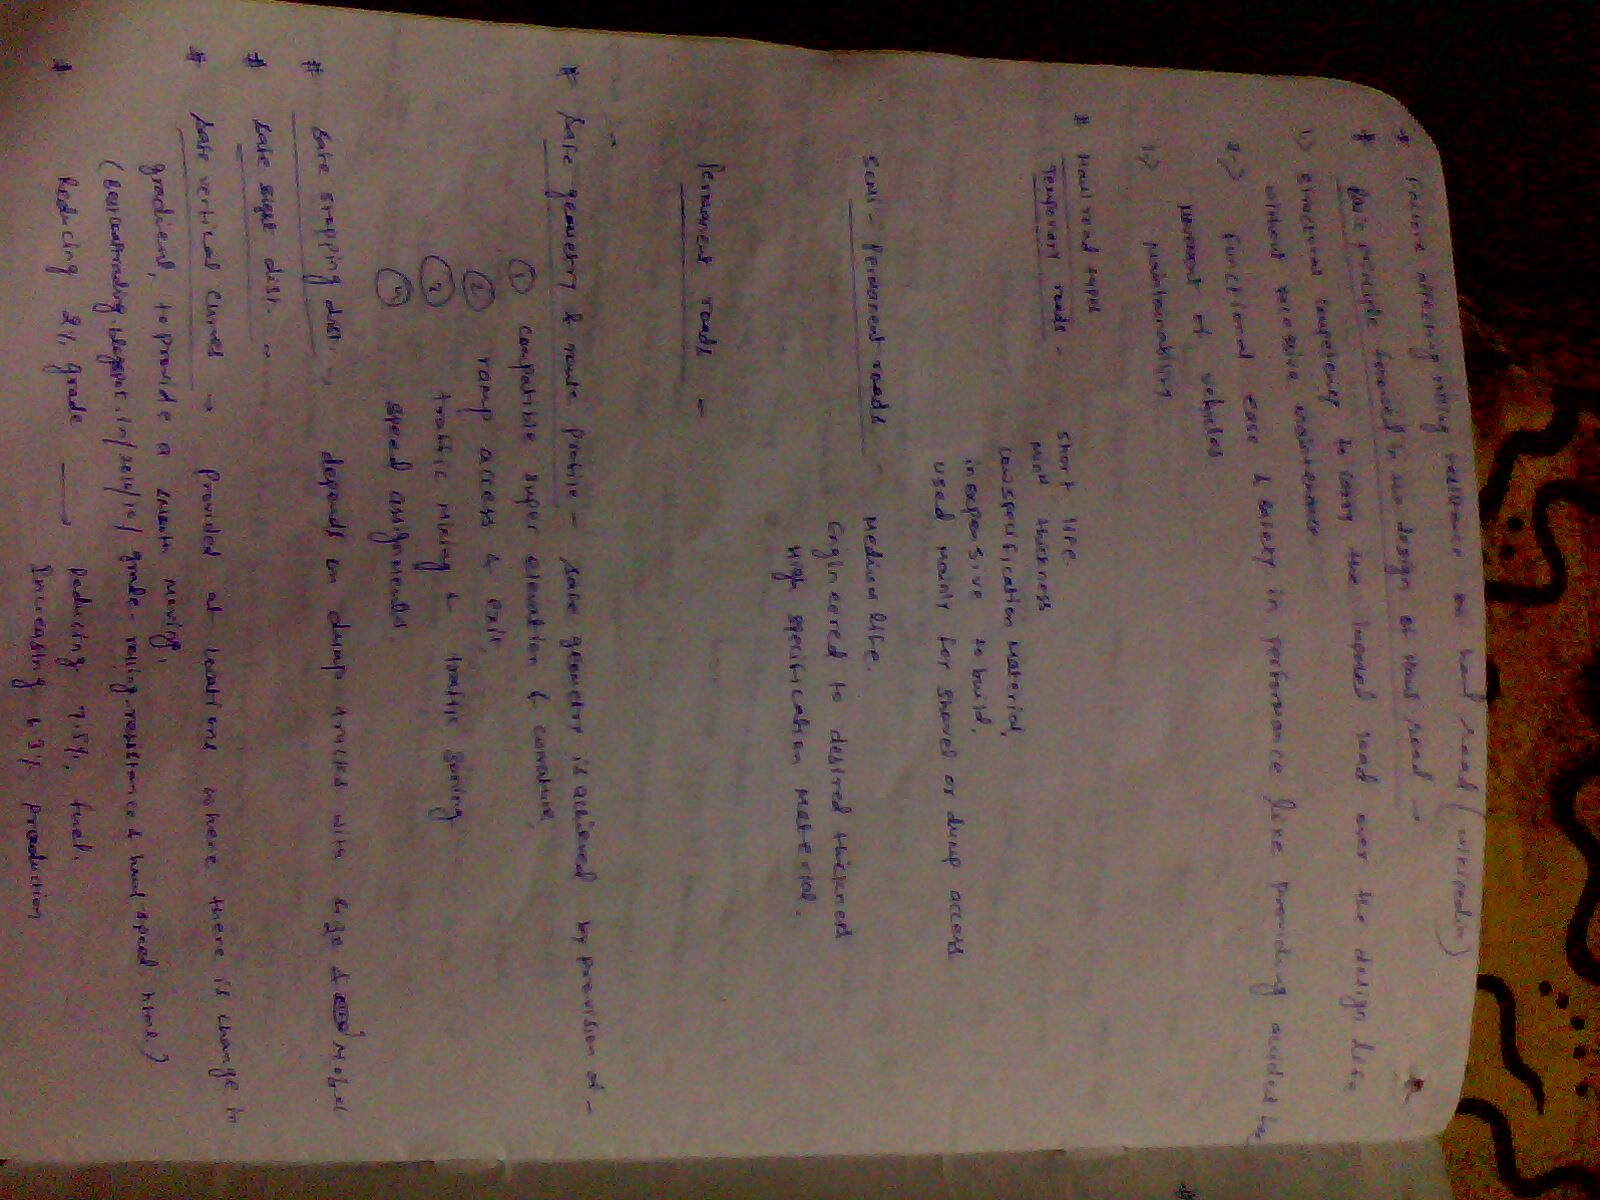 # Factors affecting rolling resistance on haul road (wikipedia)
# Basic principle followed in the design of Haul road →
1.) structural competency to carry the imposed load over the design life
without excessive maintenance
2.) functional ease & safety in performance like providing
movement of vehicles
3.) maintainability
# Haul road types
Temporary roads - short life
min thickness
low specification material,
inexpensive to build,
used mainly for shovel or dump access
Semi-permanent roads - Medium life.
Engineered to desired thickness
High specification material.
Permanent roads -
# Safe geometry & route profile - safe geometry is achieved by provision of -
① compatible super elevation & curvature,
② ramp access & exit,
③ traffic mixing & traffic joining
④ speed assignments.
# Safe stopping dist. → depends on dump trucks with size & Model
# Safe sight dist. →
# Safe vertical curves → provided at locations where there is change in
gradient, to provide a smooth moving.
grade-rolling-resistance & haul-speed.html)
# Reducing 2% grade → Reducing 7.5% fuel.
Increasing 6.3% production